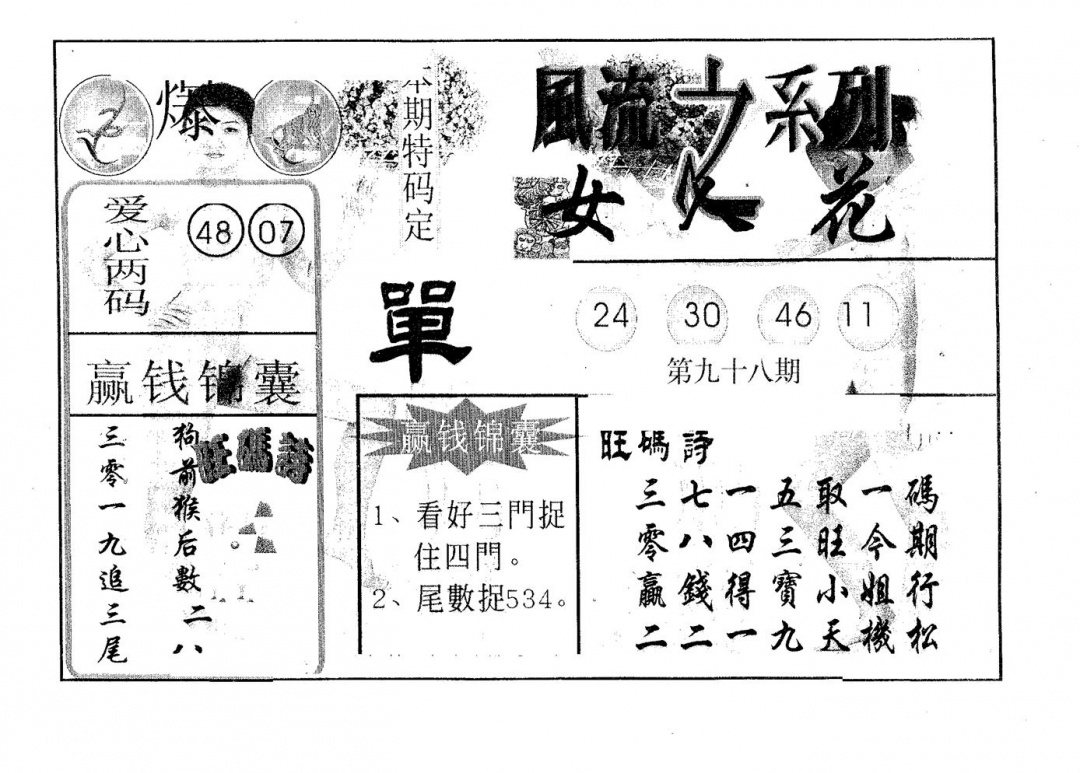 爆
爱心两码
48 07
赢钱锦囊
狗前猴后數二八
三零一九追三尾
旺碼詩
本期特码定
單
風流之系列
女人花
24 30 46 11
第九十八期
赢钱锦囊
1、看好三門捉
住四門。
2、尾數捉534。
旺碼詩
三七一五取一碼
零八四三旺今期
贏錢得寶小姐行
二二一九天機松